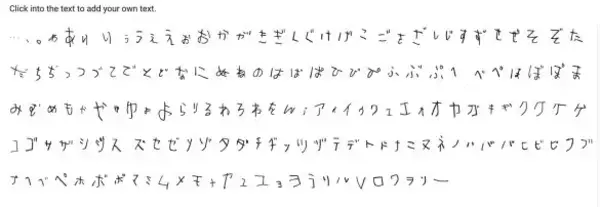 Click into the text to add your own text.
…、。ぁあぃいぅうぇえぉおかがきぎくぐけげこごさざしじすずせぜそぞた
だちぢっつづてでとどなにぬねのはばぱひびぴふぶぷへべぺほぼぽま
みむめもゃやゅゆょよらりるれろわをんァアィイゥウェエォオカガキギクグケゲ
コゴサザシジスズセゼソゾタダチヂッツヅテデトドナニヌネノハバパヒビピフブ
プヘベペホボポマミムメモャヤュユョヨラリルレロワヲンー